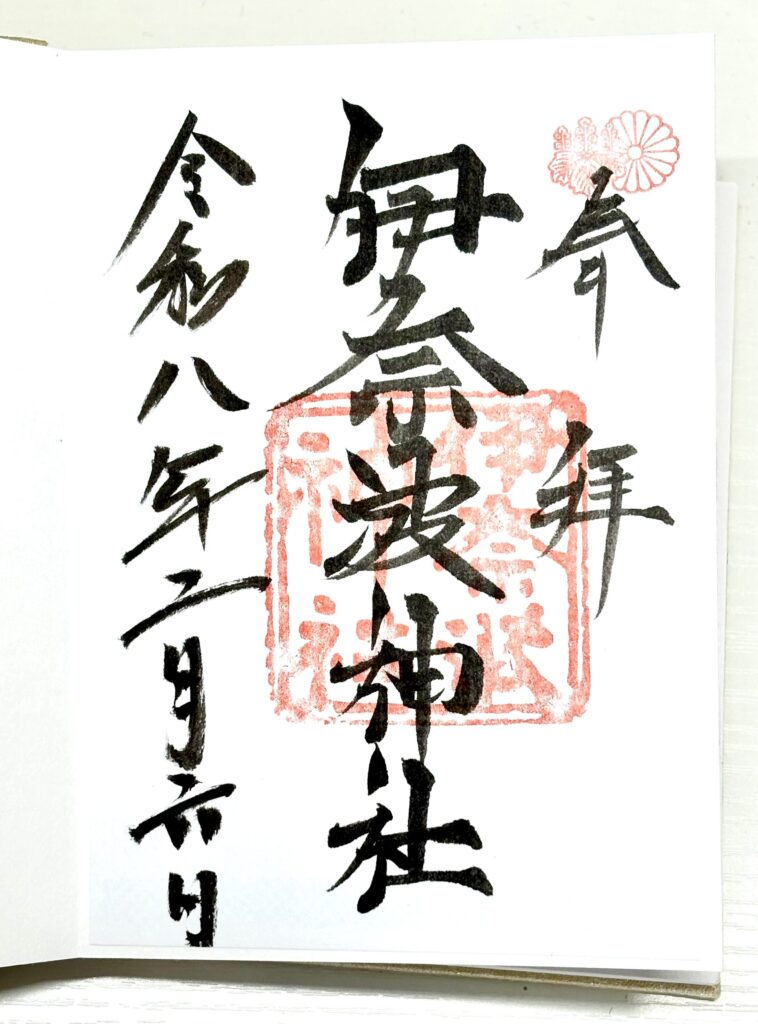 奉拝
伊奈波神社
伊奈波
神社
令和八年二月六日